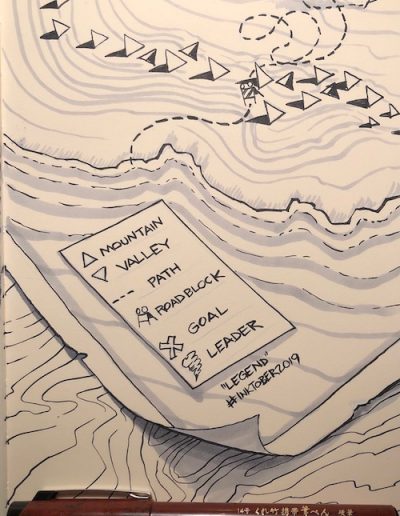 MOUNTAIN
VALLEY
PATH
ROADBLOCK
GOAL
LEADER
"LEGEND"
#INKTOBER2019
くれ竹携帯筆ぺん